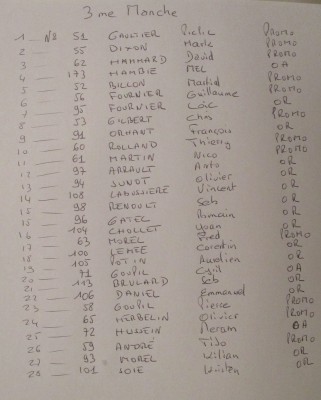 3me Manche
1 — N° 51 GAUTIER PROMO
2 — 55 DIXON Mark PROMO
3 — 62 HAMMARD David PROMO
4 — 173 HAMBIE MEL OA
5 — 52 BILLON Martial PROMO
6 — 56 FOURNIER Guillaume PROMO
7 — 95 FOURNIER Loïc OR
8 — 53 GILBERT Chris PROMO
9 — 91 ORHANT François OR
10 — 60 ROLLAND Thierry PROMO
11 — 61 MARTIN Nico PROMO
12 — 97 ARRAULT Anto OR
13 — 94 Olivier OR
14 — 108 Vincent OR
15 — 98 RENOULT Seb OR
15 — 96 GATEL Romain OR
16 — 104 CHOLLET Yoan OR
17 — 63 MOREL Fred PROMO
18 — 100 LEMEE Corentin OR
19 — 105 POTIN Aurelien OR
20 — 71 GOUPIL Cyril OA
21 — 113 BRULARD Seb OR
22 — 106 DANIEL Emmanuel OR
23 — 58 GOUPIL Pierre PROMO
24 — 65 HERBELIN Olivier PROMO
25 — 72 HUSSEIN Meram OA
26 — 59 ANDRÉ PROMO
27 — 93 MOREL Wilian OR
28 — 101 OR